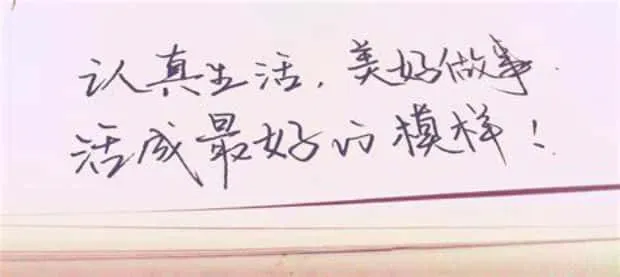 认真生活，美好做事.
活成最好的模样！